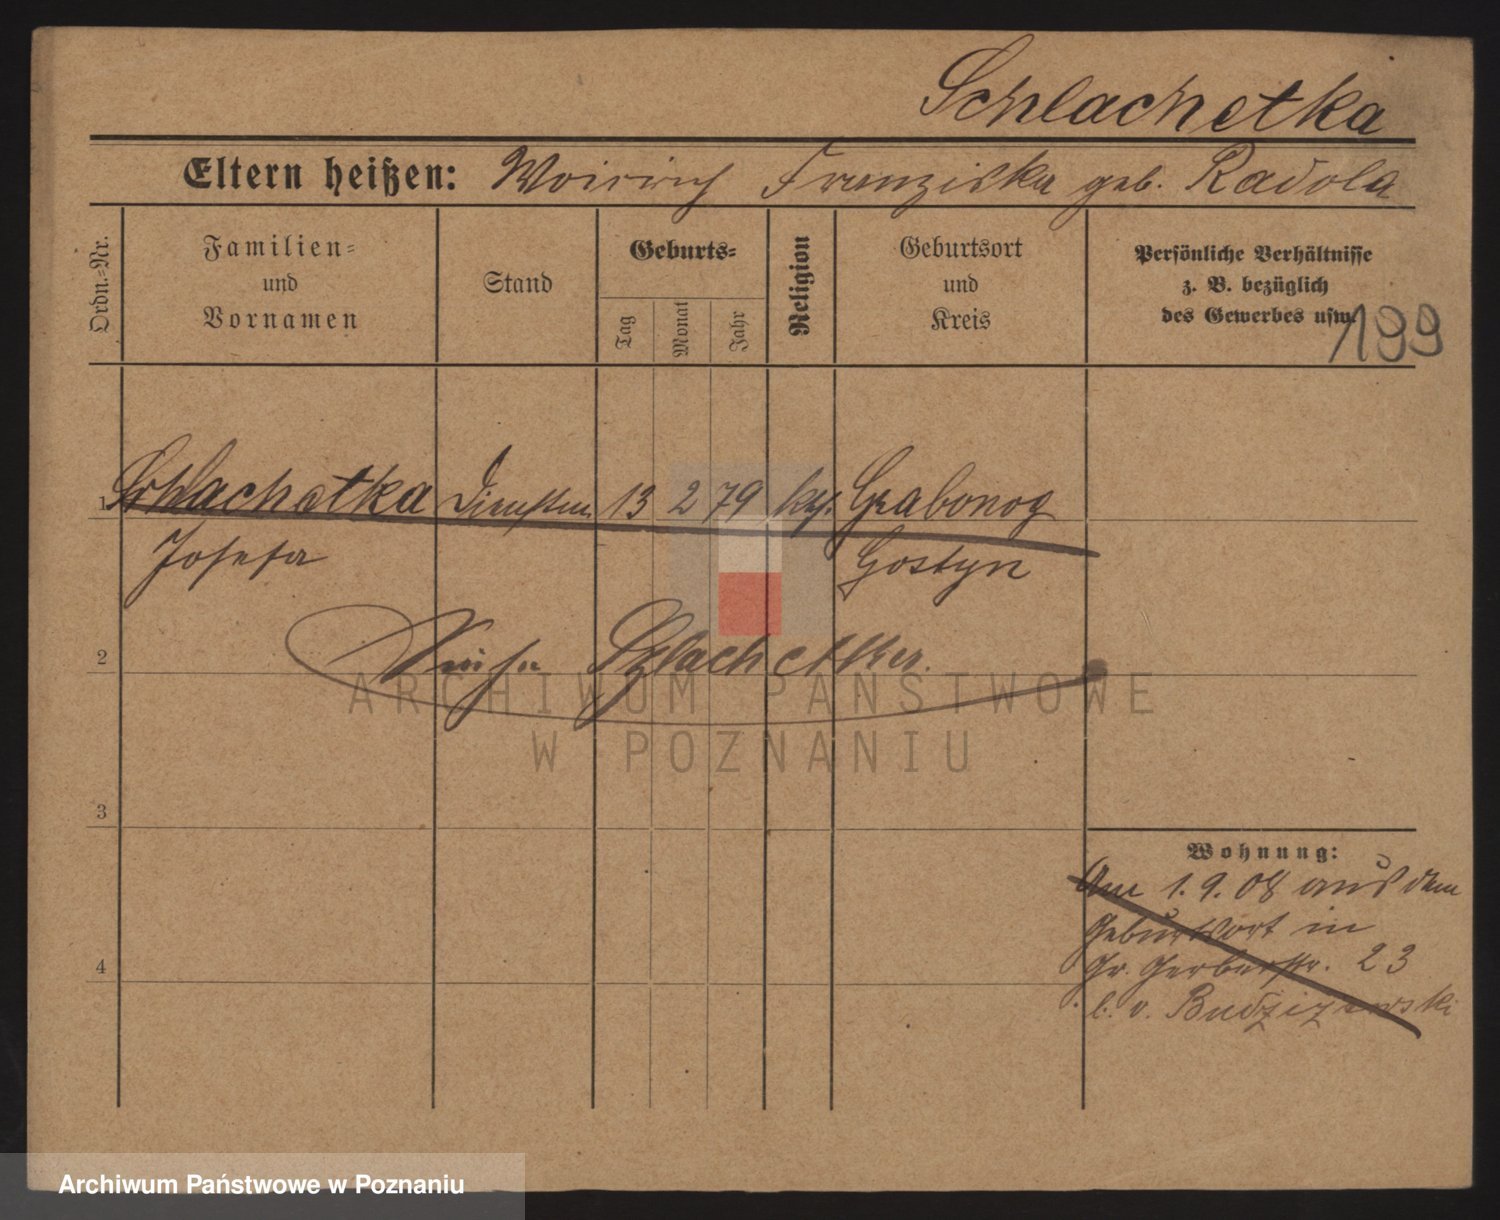 Schlachetka
Eltern heißen: Franziska geb. Radola
Ordn.=Nr.
Familien=
und
Vornamen
Stand
Geburts=
Tag
Monat
Jahr
Religion
Geburtsort
und
Kreis
Persönliche Verhältnisse
z. B. bezüglich
des Gewerbes usw.
199
1 Schlachetka 13 2 79 Grabonog
Josefa Gostyn
2 Szlachetka.
ARCHIWUM PAŃSTWOWE
W POZNANIU
3
4
Wohnung:
Am 1.9.08 aus dem
Geburtsort in
Gr. Gerberstr. 23
b. v. Budzizewski
Archiwum Państwowe w Poznaniu